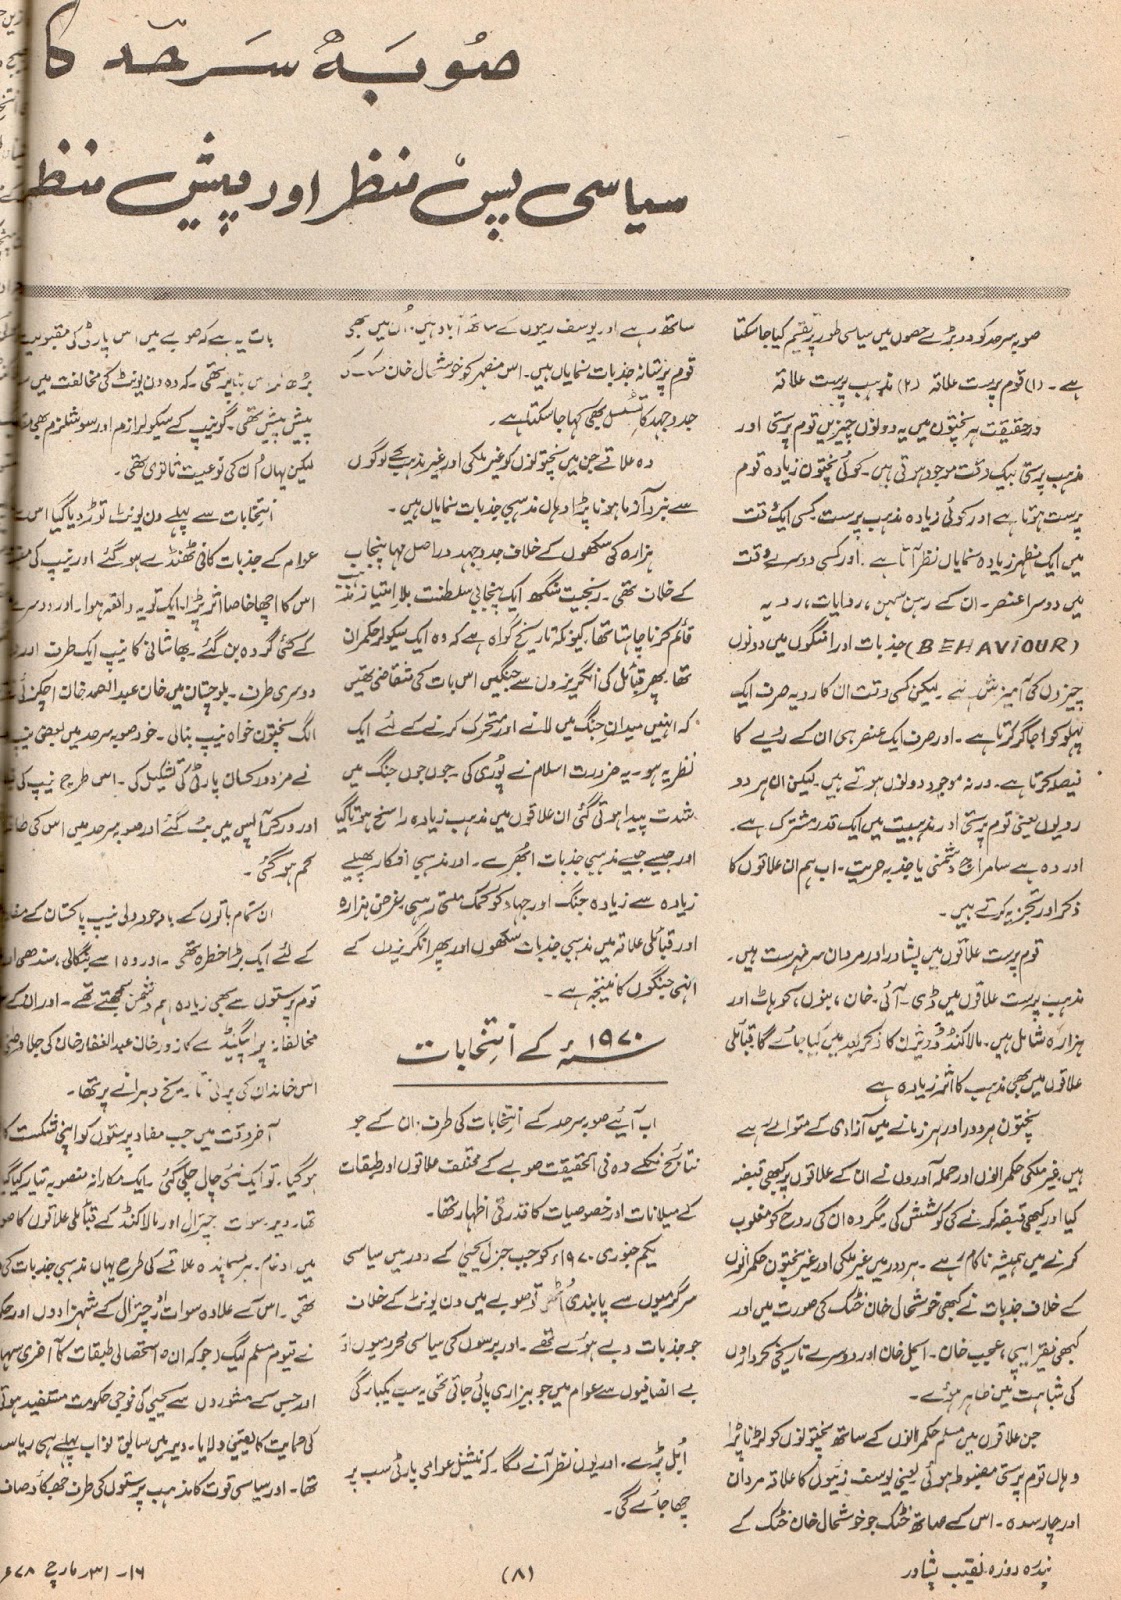 صُوبَہْ سَرحَد کا
سیاسی پسْ منظر اور پیش منظر
صوبہ سرحد کو دو بڑے حصوں میں سیاسی طور پر تقسیم کیا جا سکتا
ہے ۔ (۱) قوم پرست علاقہ (۲) مذہب پرست علاقہ
درحقیقت ہر پختون میں یہ دونوں چیزیں قوم پرستی اور
مذہب پرستی بیک وقت موجود ہوتی ہیں ۔ کوئی پختون زیادہ قوم
پرست ہوتا ہے اور کوئی زیادہ مذہب پرست کسی ایک وقت
میں ایک مظہر زیادہ نمایاں نظر آتا ہے ۔ اور کسی دوسرے وقت
میں دوسرا عنصر ۔ ان کے رہن سہن ، روایات ، رویہ
(BEHAVIOUR) جذبات اور امنگوں میں دونوں
چیزوں کی آمیزش ہے ۔ لیکن کسی وقت ان کا رویہ صرف ایک
پہلو کو اجاگر کرتا ہے ۔ اور صرف ایک عنصر ہی ان کے رویے کا
فیصلہ کرتا ہے ۔ ورنہ موجود دونوں ہوتے ہیں ۔ لیکن ان ہر دو
رویوں یعنی قوم پرستی اور مذہبیت میں ایک قدر مشترک ہے ۔
اور وہ ہے سامراج دشمنی یا جذبہ حریت ۔ اب ہم ان علاقوں کا
ذکر اور تجزیہ کرتے ہیں ۔
قوم پرست علاقوں میں پشاور اور مردان سرفہرست ہیں ۔
مذہب پرست علاقوں میں ڈی ۔ آئی ۔ خان ، بنوں ، کوہاٹ اور
ہزارہ شامل ہیں ۔ مالاکنڈ ڈویژن کا ذکر بعد میں کیا جائے گا قبائلی
علاقوں میں بھی مذہب کا اثر زیادہ ہے
پختون ہر دور اور ہر زمانے میں آزادی کے متوالے رہے
ہیں غیر ملکی حکمرانوں اور حملہ آوروں نے ان کے علاقوں پر کبھی قبضہ
کیا اور کبھی قبضہ کرنے کی کوشش کی مگر وہ ان کی روح کو مغلوب
کرنے میں ہمیشہ ناکام رہے ۔ ہر دور میں غیر ملکی اور غیر پختون حکمرانوں
کے خلاف جذبات نے کبھی خوشحال خان خٹک کی صورت میں اور
کبھی فقیر ایپی ، عجب خان ۔ ایمل خان اور دوسرے تاریخی کرداروں
کی شباہت میں ظاہر ہوئے ۔
جن علاقوں میں مسلم حکمرانوں کے ساتھ پختونوں کو لڑنا پڑا
وہاں قوم پرستی مضبوط ہوئی یعنی یوسف زئیوں کا علاقہ مردان
اور چارسدہ ۔ اس کے ساتھ خٹک جو خوشحال خان خٹک کے
ساتھ رہے اور یوسف زیوں کے ساتھ آباد ہیں ۔ اُن میں بھی
قوم پرستانہ جذبات نمایاں ہیں ۔ اس عنصر کو خوشحال خان خٹک کی
جدوجہد کا تسلسل بھی کہا جا سکتا ہے ۔
وہ علاقے جن میں پختونوں کو غیر ملکی اور غیر مذہب کے لوگوں
سے نبرد آزما ہونا پڑا وہاں مذہبی جذبات نمایاں ہیں ۔
ہزارہ کی سکھوں کے خلاف جدوجہد دراصل مہا پنجاب
کے خلاف تھی ۔ رنجیت سنگھ ایک پنجابی سلطنت بلا امتیاز مذہب
قائم کرنا چاہتا تھا ۔ کیونکہ تاریخ گواہ ہے کہ وہ ایک سیکولر حکمران
تھا پھر قبائل کی انگریزوں سے جنگیں اس بات کی متقاضی تھیں
کہ انہیں میدان جنگ میں لانے اور متحرک کرنے کے لئے ایک
نظریہ ہو ۔ یہ ضرورت اسلام نے پُوری کی ۔ جوں جوں جنگ میں
شدت پیدا ہوتی گئی ان علاقوں میں مذہب زیادہ راسخ ہوتا گیا
اور جیسے جیسے مذہبی جذبات ابھرے ۔ اور مذہبی افکار پھیلے
زیادہ سے زیادہ جنگ اور جہاد کو کمک ملتی رہی بغرض ہزارہ
اور قبائلی علاقہ میں مذہبی جذبات سکھوں اور پھر انگریزوں کے
انہی جنگوں کا نتیجہ ہے ۔
۱۹۷۰ء کے انتخابات
اب آئیے صوبہ سرحد کے انتخابات کی طرف ۔ ان کے جو
نتائج نکلے وہ فی الحقیقت صوبے کے مختلف علاقوں اور طبقات
کے میلانات اور خصوصیات کا قدرتی اظہار تھا ۔
یکم جنوری ۱۹۷۰ء کو جب جنرل یحییٰ کے دور میں سیاسی
سرگرمیوں سے پابندی اُٹھی تو صوبے میں ون یونٹ کے خلاف
جو جذبات دبے ہوئے تھے ۔ اور برسوں کی سیاسی محرومیوں اور
بے انصافیوں سے عوام میں جو بیزاری پائی جاتی تھی یہ سب یکبارگی
اُبل پڑے ۔ اور یوں نظر آنے لگا ۔ کہ نیشنل عوامی پارٹی سب پر
چھا جائے گی ۔
بات یہ ہے کہ صوبے میں اس پارٹی کی مقبولیت
بڑھ کر اس بنا پر تھی ۔ کہ وہ ون یونٹ کی مخالفت میں سب
پیش پیش تھی ۔ گو نیپ کے سیکولرازم اور سوشلزم بھی
لیکن یہاں اُن کی نوعیت ثانوی تھی ۔
انتخابات سے پہلے ون یونٹ توڑ دیا گیا اس سے
عوام کے جذبات کافی ٹھنڈے ہو گئے اور نیپ کی
اس کا اچھا خاصا اثر پڑا ۔ ایک تو یہ واقعہ ہوا ۔ اور دوسرے
کے کئی گروہ بن گئے ۔ بھاشانی کا نیپ ایک طرف اور
دوسری طرف ۔ بلوچستان میں خان عبدالصمد خان اچکزئی نے
الگ پختون خواہ نیپ بنالی ۔ خود صوبہ سرحد میں بعض نیپ
نے مزدور کسان پارٹی کی تشکیل کی ۔ اس طرح نیپ کی
اور ورکر آپس میں بٹ گئے اور صوبہ سرحد میں اس کی
کم ہو گئی ۔
ان تمام باتوں کے باوجود ولی نیپ پاکستان کے
کے لئے ایک بڑا خطرہ تھی ۔ اور وہ اسے بنگالی ، سندھی اور
قوم پرستوں سے بھی زیادہ اہم دشمن سمجھتے تھے ۔ اور ان کے
مخالفانہ پراپیگنڈے کا زور خان عبدالغفار خان کی جلاوطنی
اس خاندان کی پرانی تاریخ دہرانے پر تھا ۔
آخر وقت میں جب مفاد پرستوں کو اپنی شکست کا
ہو گیا ۔ تو ایک نئی چال چلی گئی ۔ ایک مکارانہ منصوبہ تیار کیا گیا
تھا ۔ دیر ، سوات چترال اور مالاکنڈ کے قبائلی علاقوں کا
میں ادغام ۔ ہر پسماندہ علاقے کی طرح یہاں مذہبی جذبات کی
تھی ۔ اس کے علاوہ سوات اور چترال کے شہزادوں اور
نے قیوم مسلم لیگ (جو کہ ان استحصالی طبقات کا آخری سہارا
اور جس کے مشوروں سے یحییٰ کی فوجی حکومت مستفید ہوتی
کی حمایت کا یقین دلایا ۔ دیر میں سابق نواب پہلے ہی
تھا ۔ اور سیاسی قوت کا مذہب پرستوں کی طرف جھکاؤ صاف
پندرہ روزہ نقیب پشاور
(۸)
۱۶ ۔ ۳۱ مارچ ۷۸ء